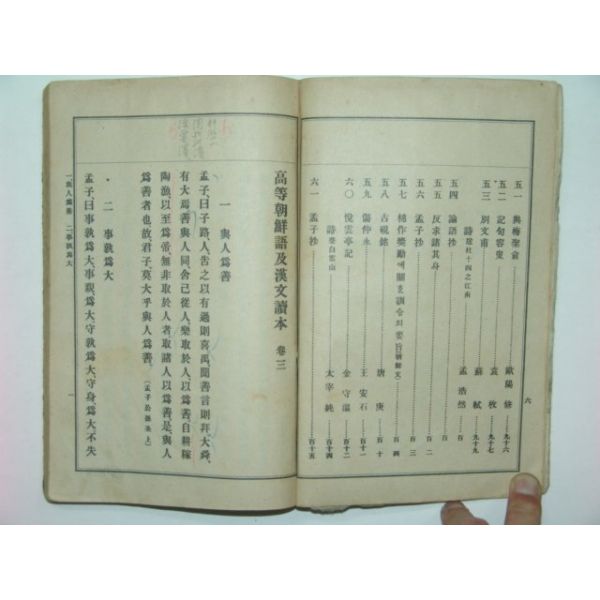 五一 與梅聖俞 歐陽修 九十六
五二 記句容叟 袁枚 九十七
五三 別文甫 蘇軾 九十九
孟浩然 百
五四 論語抄 百二
五五 反求諸其身 百三
五六 孟子抄 百四
五七
五八 古硯銘 唐庚 百十
五九 傷仲永 王安石 百十一
六〇 悅雲亭記 金守溫 百十二
太宰純 百十四
六一 孟子抄 百十五
六
高等朝鮮語及漢文讀本 卷三
一 與人爲善
孟子曰子路、人告之以有過則喜、禹聞善言則拜、大舜、
有大焉、善與人同、舍己從人、樂取於人、以爲善、自耕稼
陶漁、以至爲帝、無非取於人者、取諸人以爲善、是、與人
爲善者也、故君子莫大乎與人爲善、(孟子公孫丑上)
二 事孰爲大
孟子曰、事孰爲大、事親、爲大、守孰爲大、守身、爲大、不失
一、與人爲善 二、事孰爲大
一